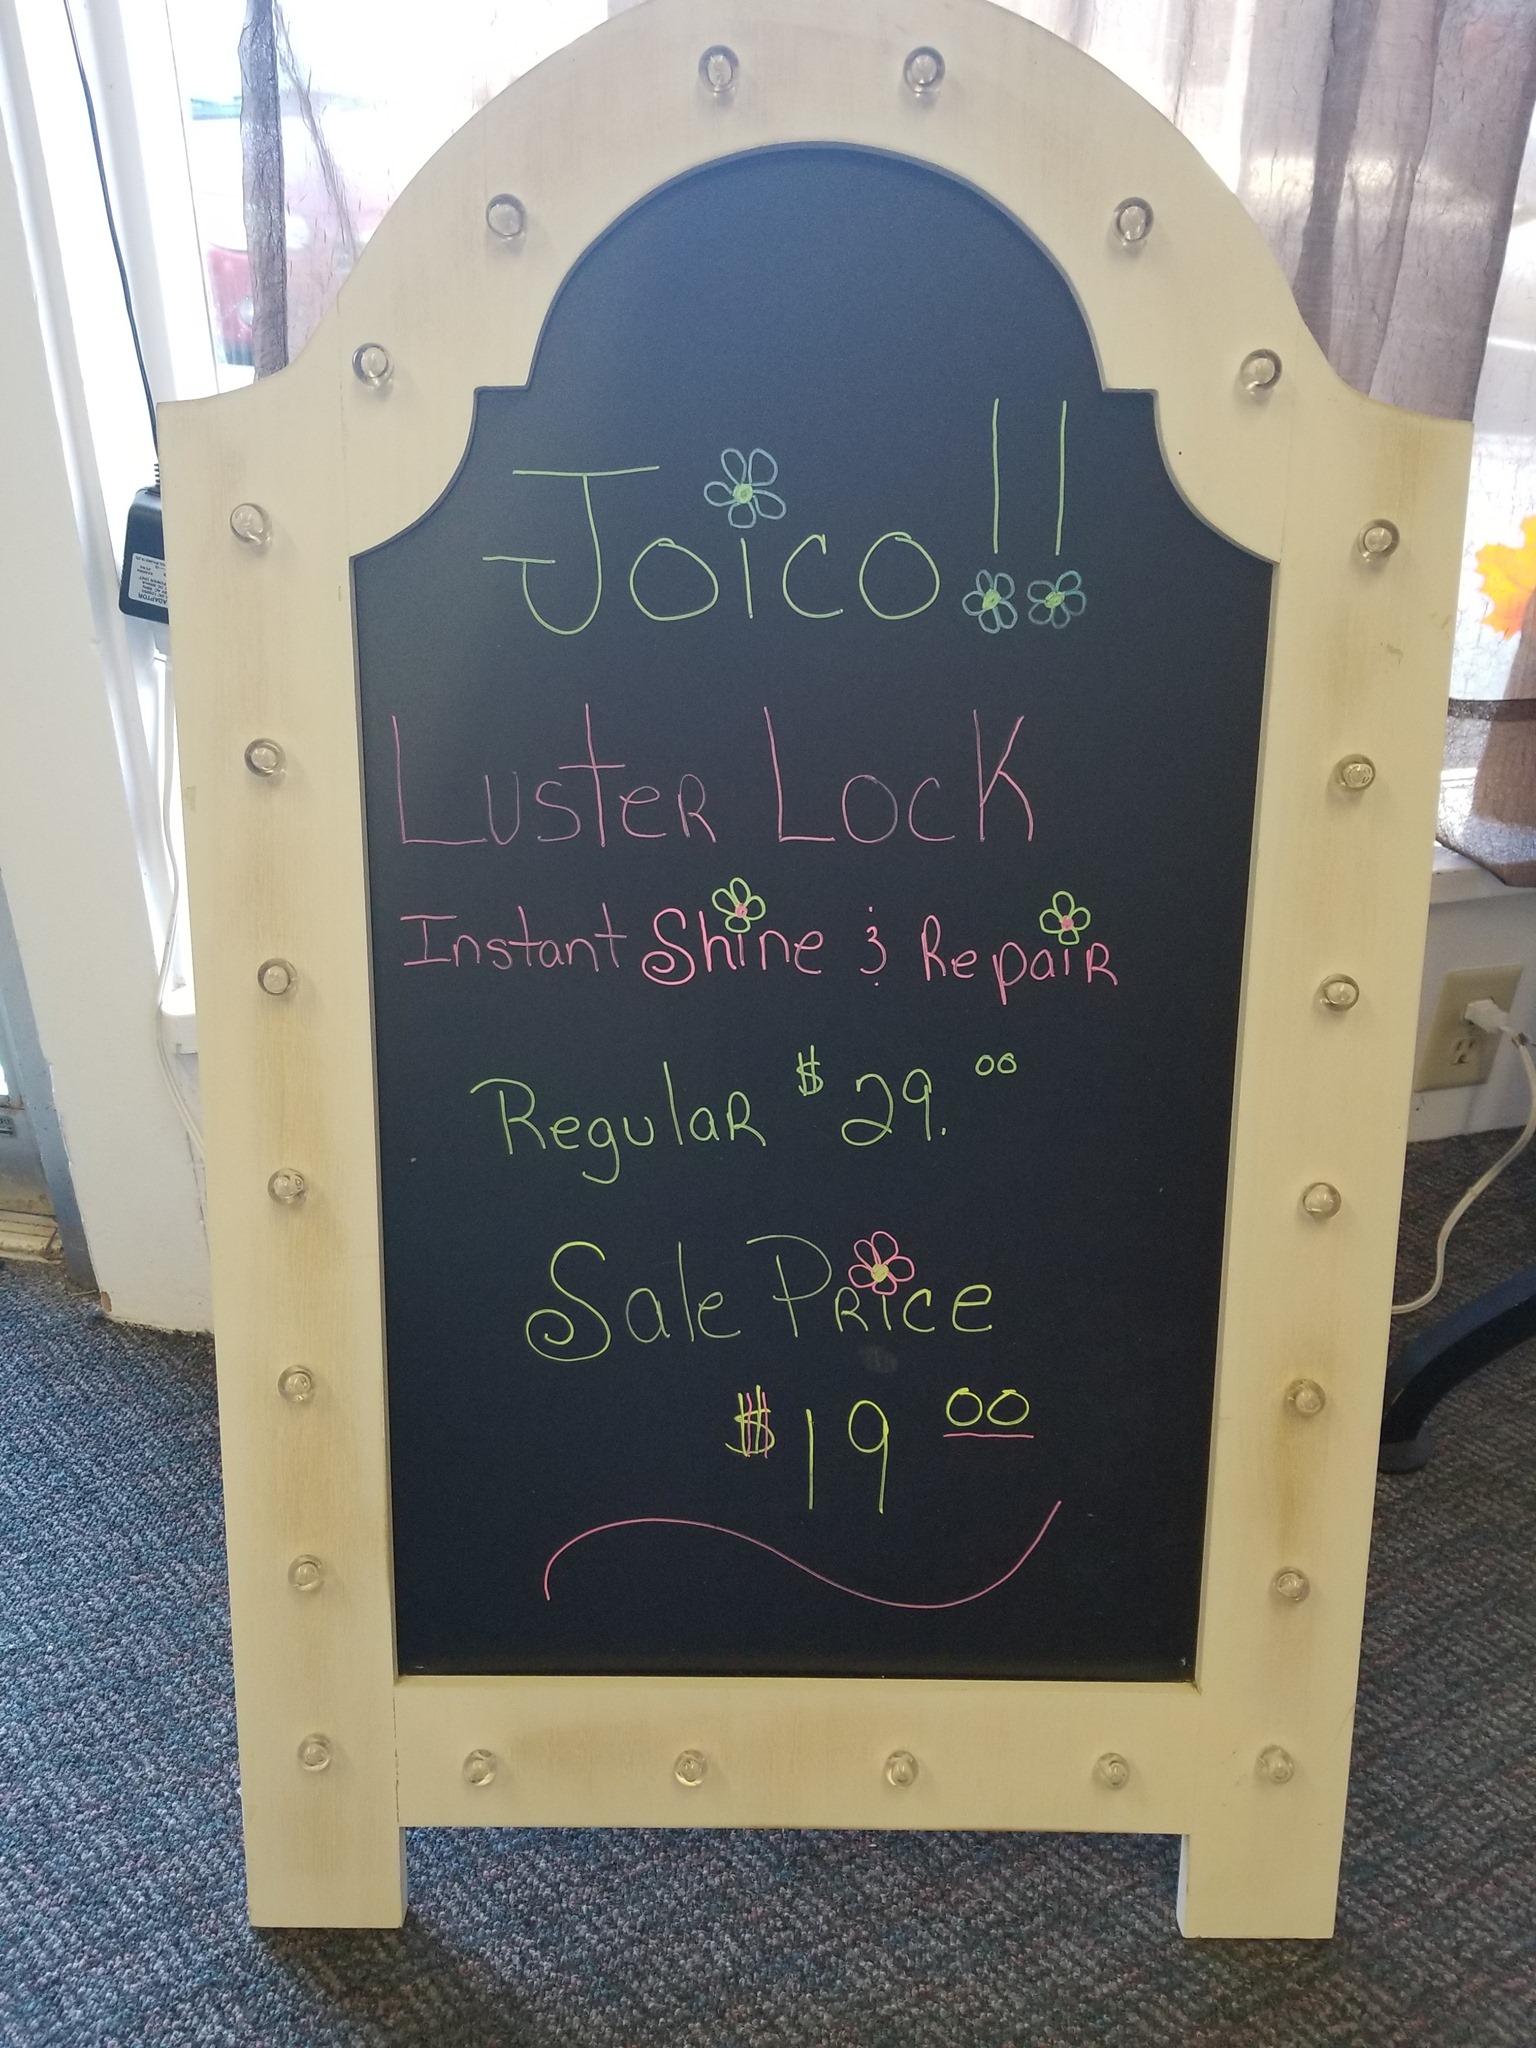 Joico!!
Luster Lock
Instant Shine & Repair
Regular $29.00
Sale Price
$19 00
ADAPTOR